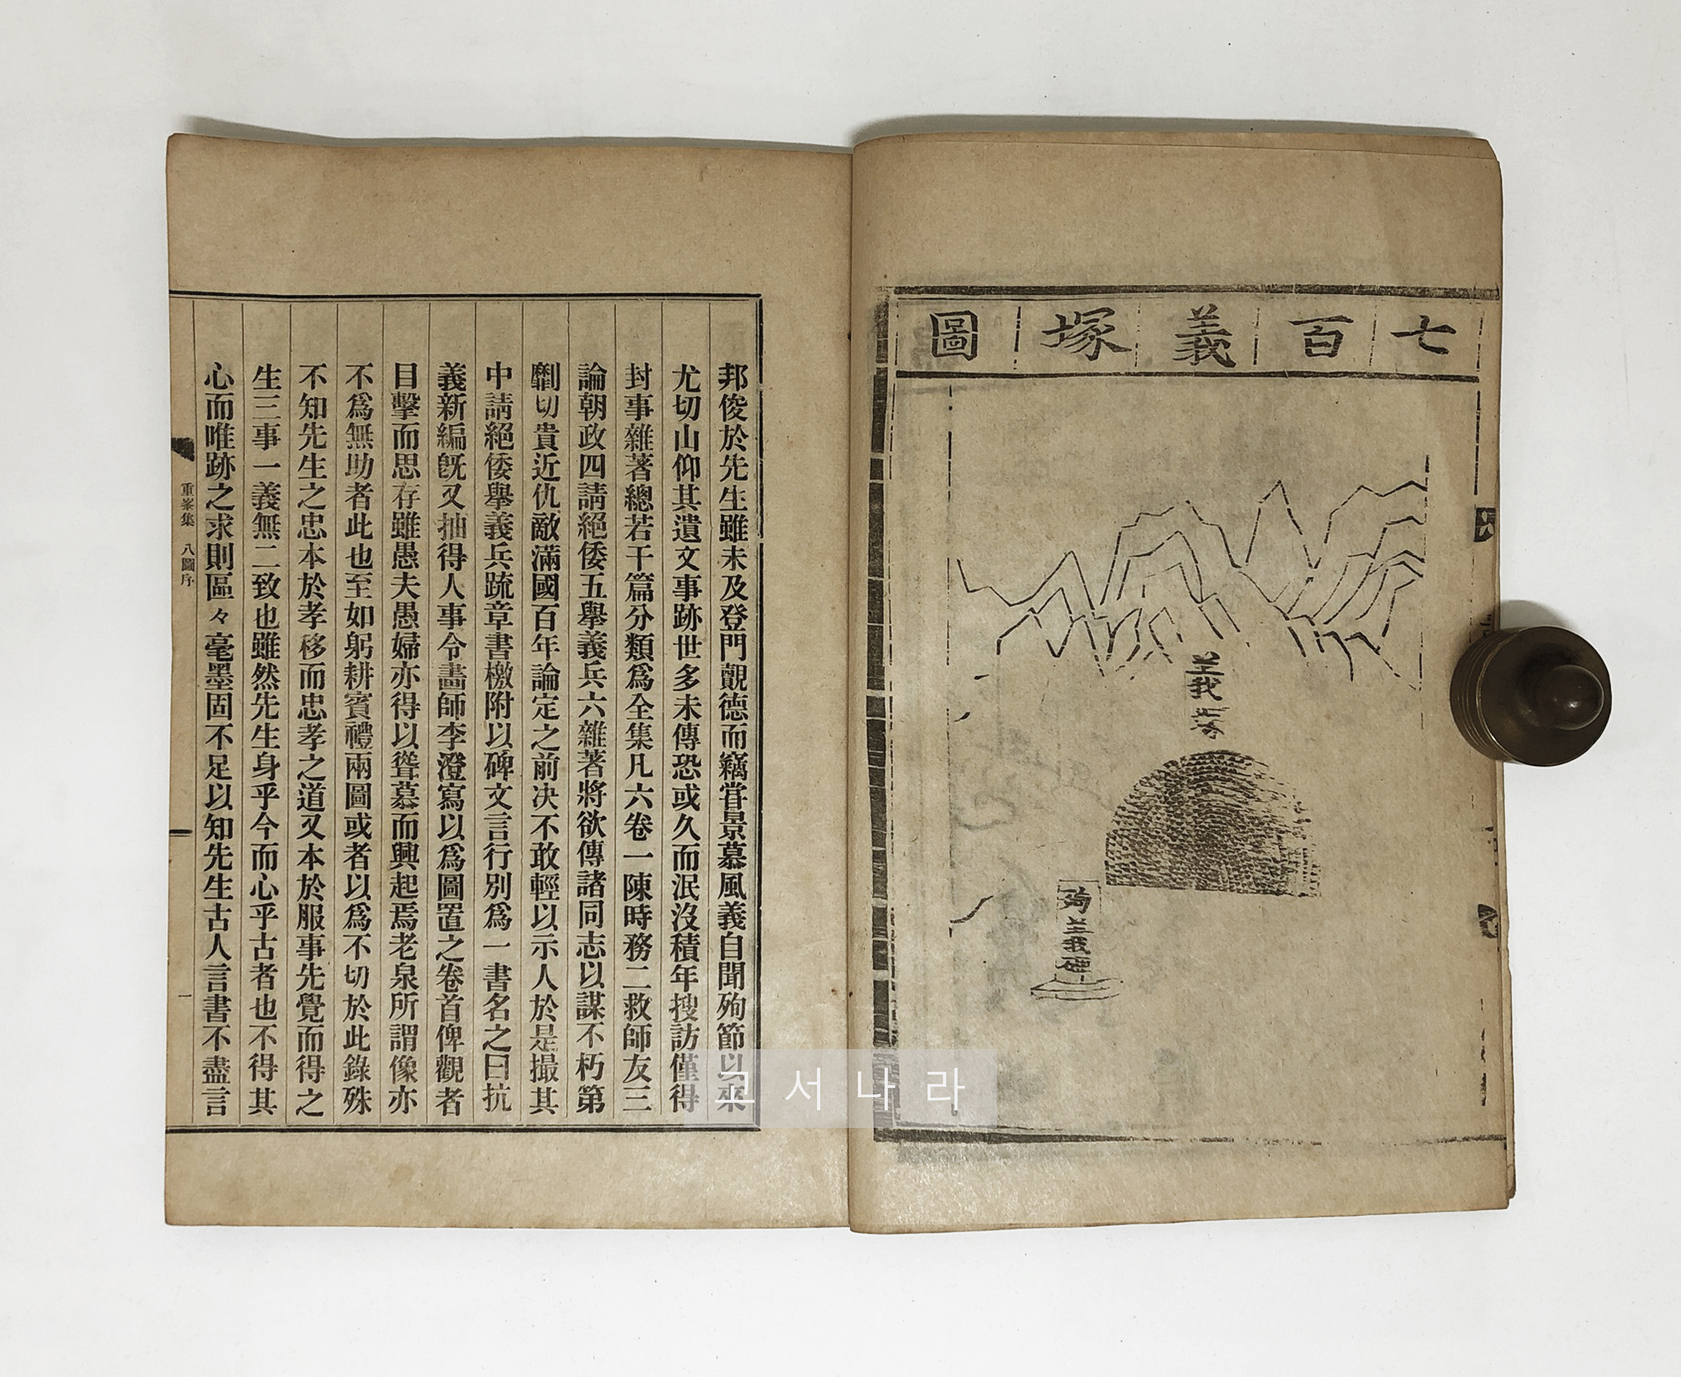 七百義塚圖
義塚
殉義碑
邦俊於先生雖未及登門覿德而竊甞景慕風義自聞殉節以來
尤切山仰其遺文事跡世多未傳恐或久而泯沒積年搜訪僅得
封事雜著總若干篇分類爲全集凡六卷一陳時務二救師友三
論朝政四請絕倭五擧義兵六雜著將欲傳諸同志以謀不朽第
劘切貴近仇敵滿國百年論定之前决不敢輕以示人於是撮其
中請絕倭擧義兵疏章書檄附以碑文言行別爲一書名之曰抗
義新編旣又抽得人事令畵師李澄寫以爲圖置之卷首俾觀者
目擊而思存雖愚夫愚婦亦得以聳慕而興起焉老泉所謂像亦
不爲無助者此也至如躬耕賓禮兩圖或者以爲不切於此錄殊
不知先生之忠本於孝移而忠孝之道又本於服事先覺而得之
生三事一義無二致也雖然先生身乎今而心乎古者也不得其
心而唯跡之求則區々毫墨固不足以知先生古人言書不盡言
重峯集 八圖序 一
고서나라